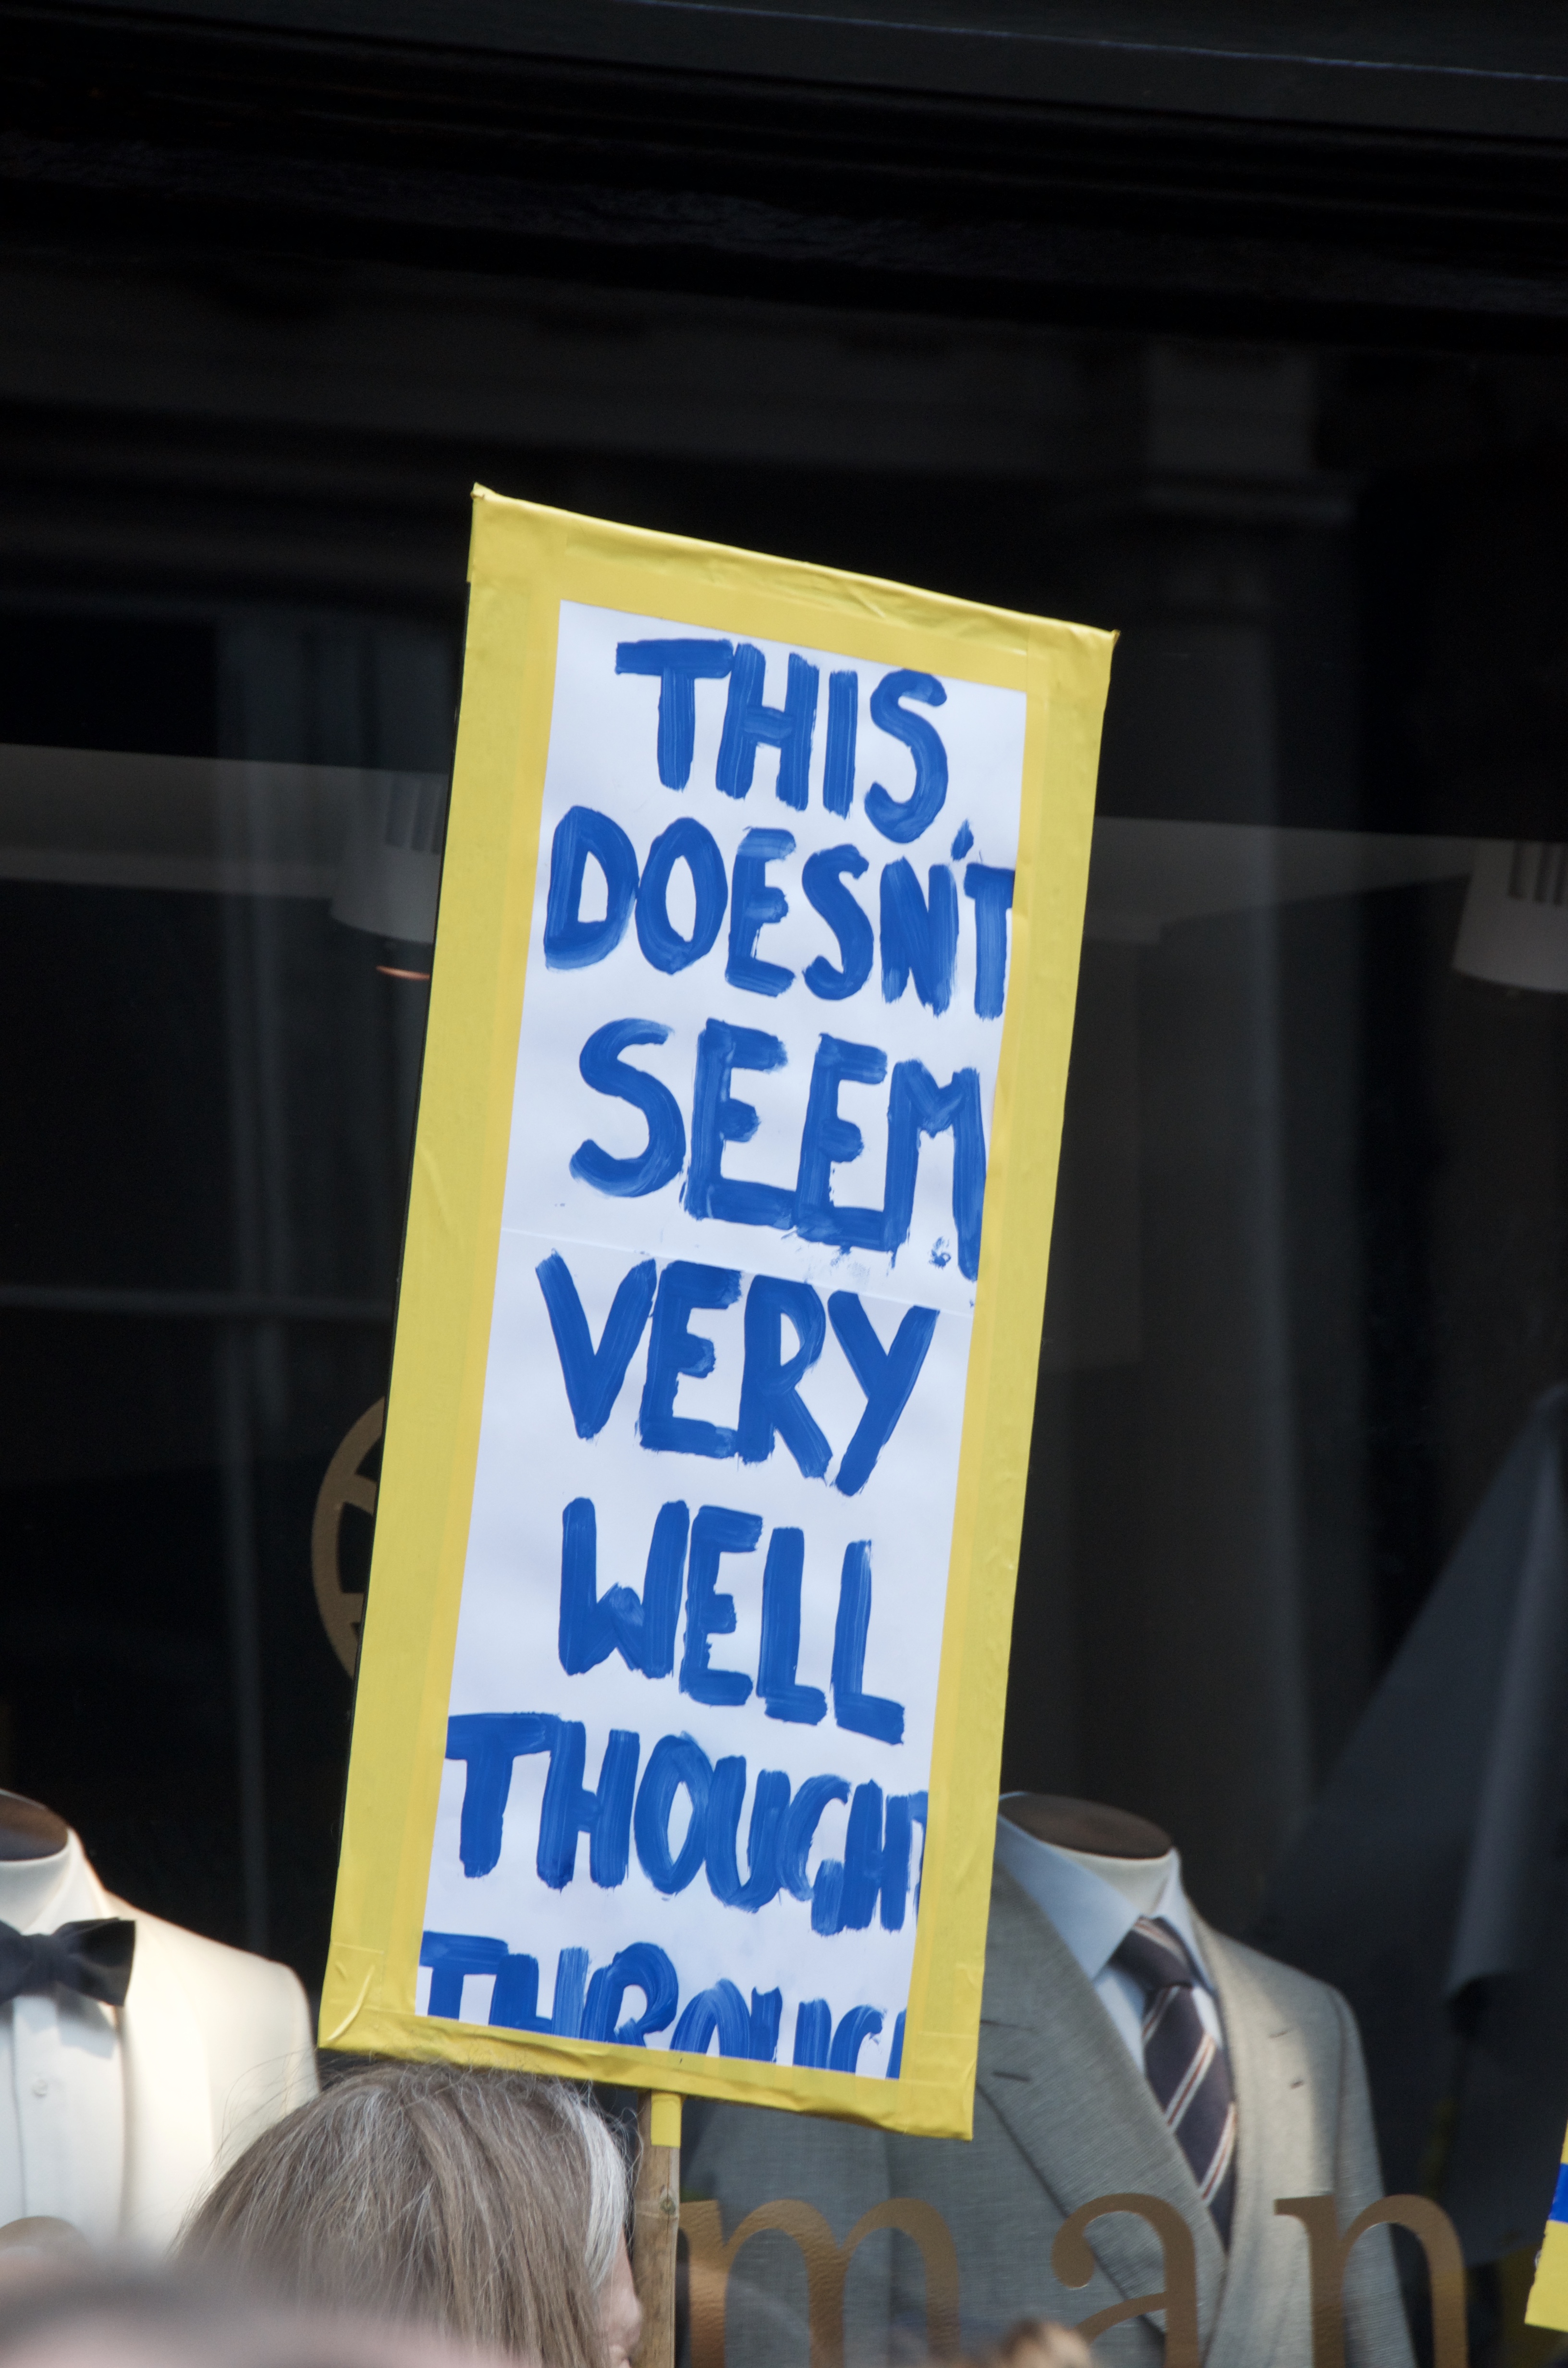 THIS
DOESN'T
SEEM
VERY
WELL
THOUGHT
THROUG
man